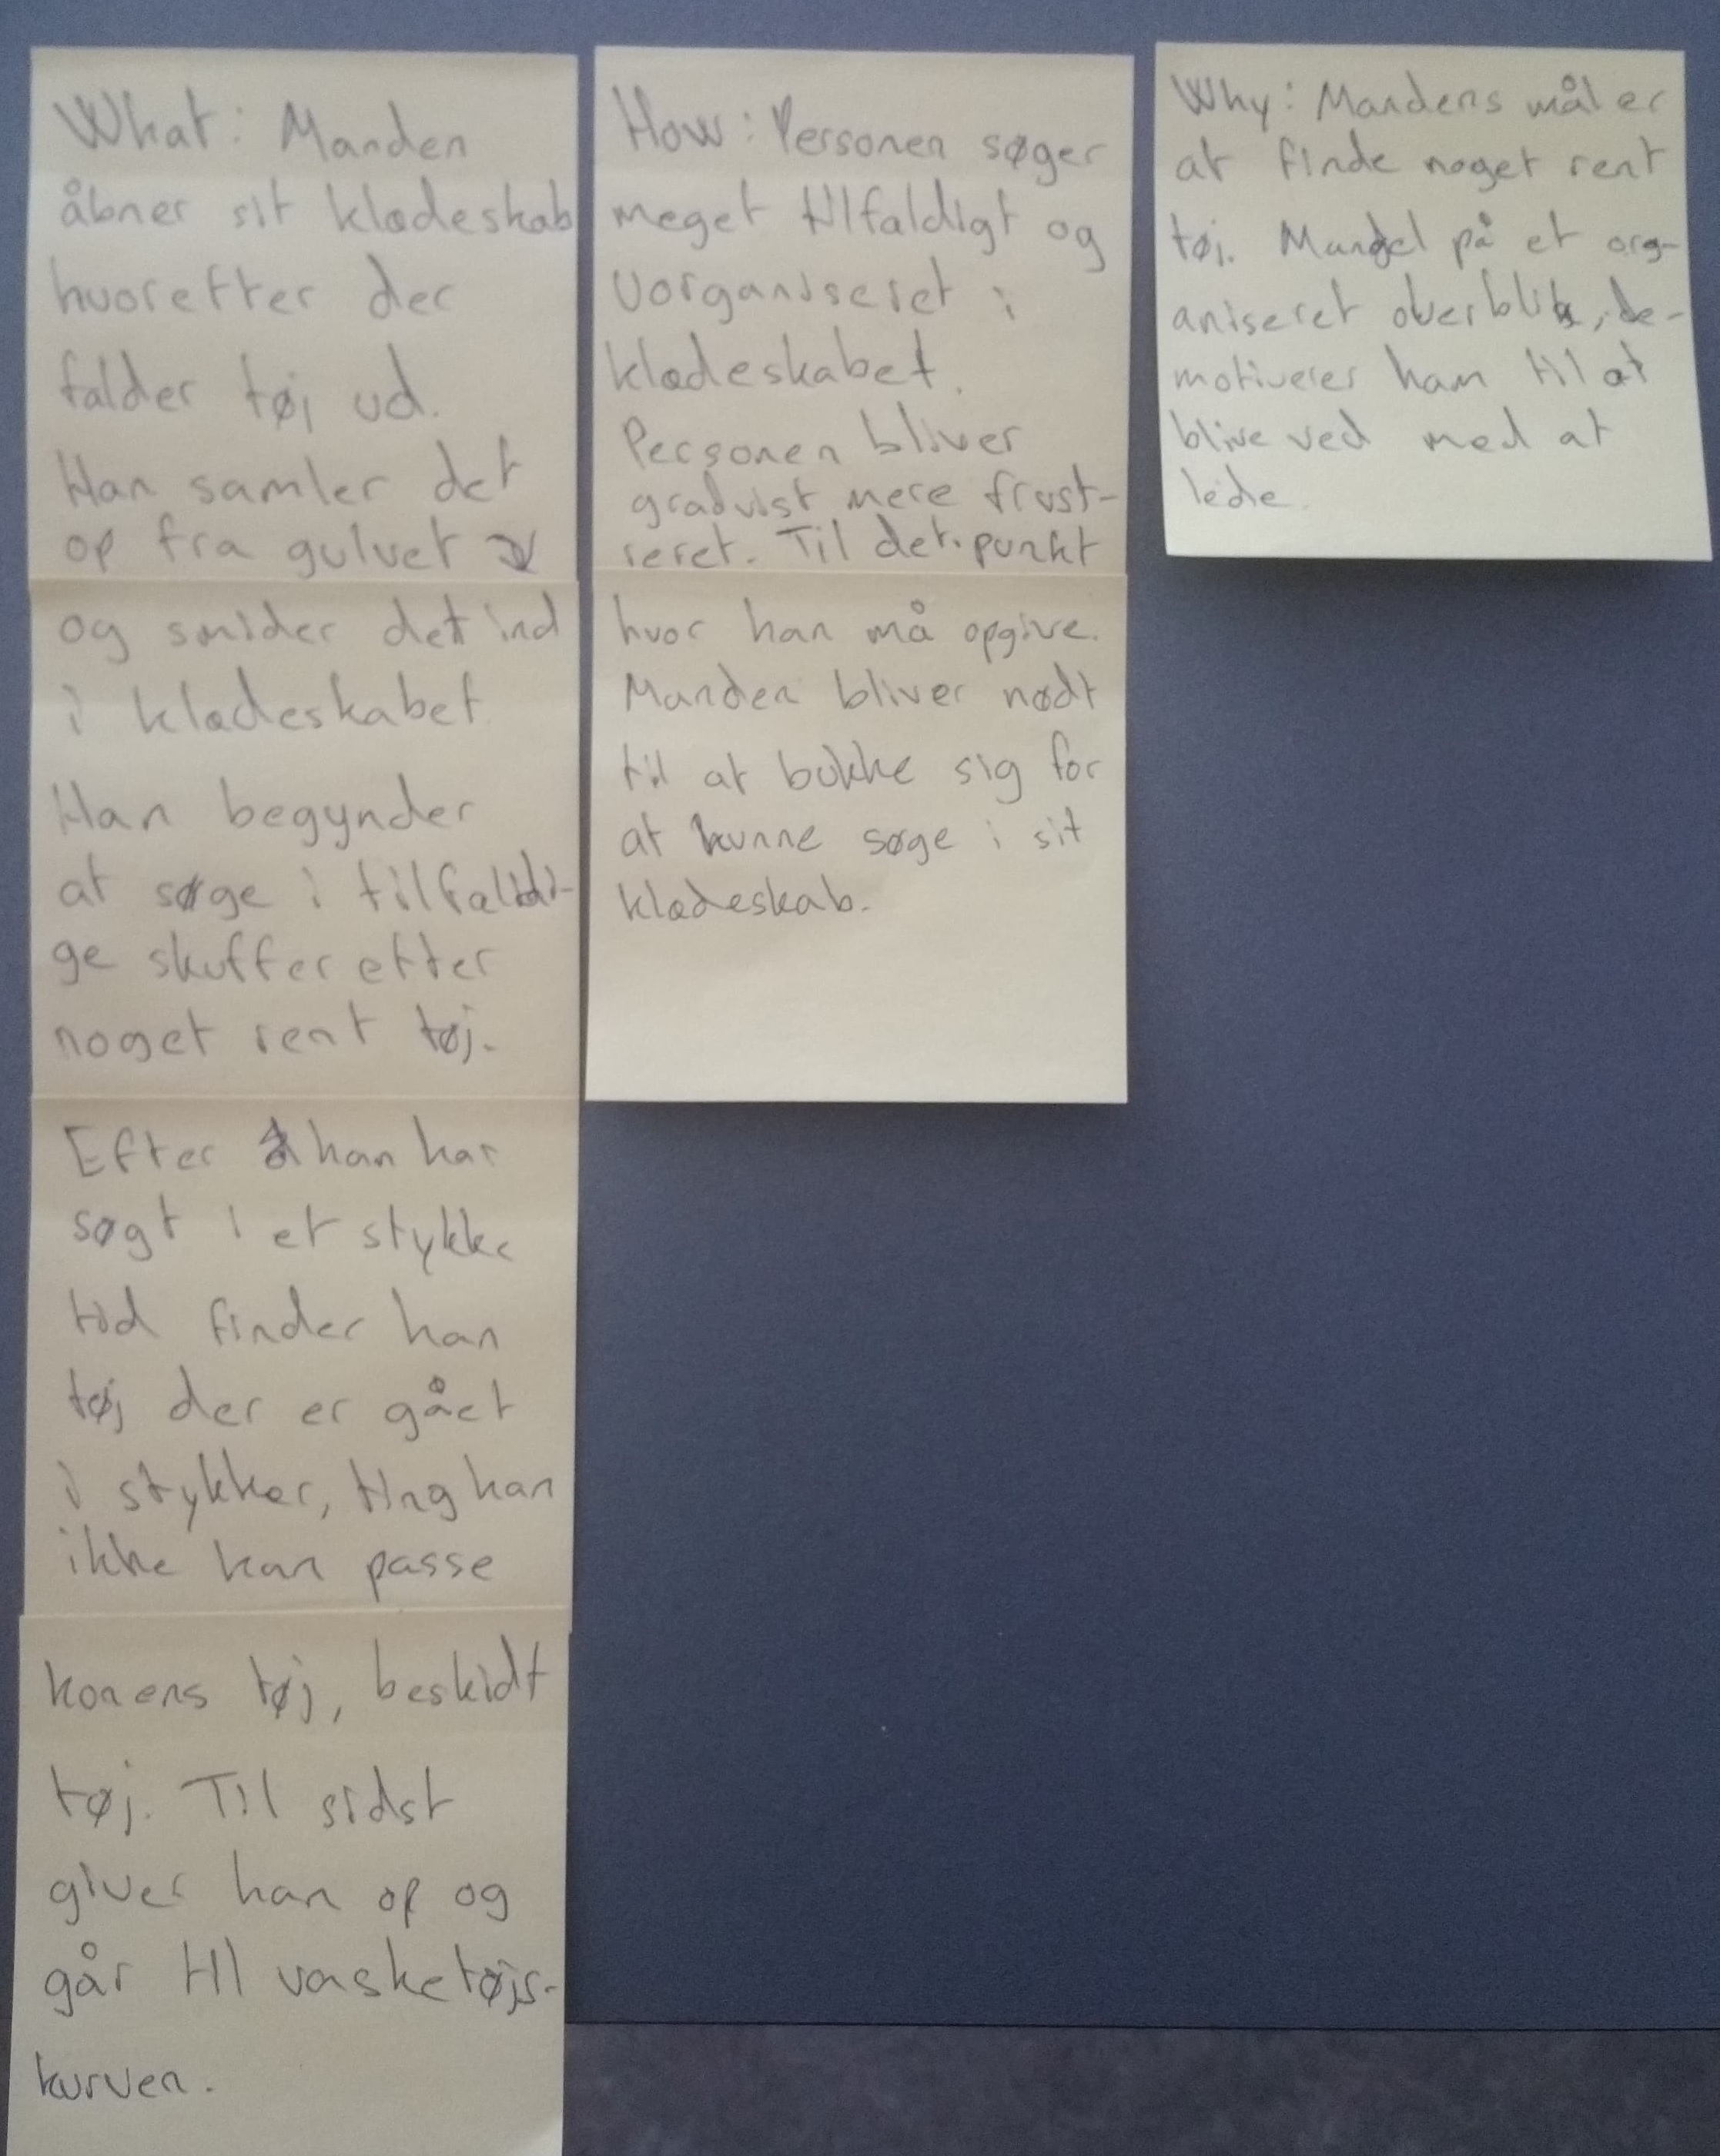 What: Manden
åbner sit klædeskab
hvorefter der
falder tøj ud.
Han samler det
op fra gulvet
og smider det ind
i klædeskabet
Han begynder
at søge i tilfældi-
ge skuffer efter
noget rent tøj.
Efter han har
søgt i et stykke
tid finder han
tøj der er gået
i stykker, ting han
ikke kan passe
konens tøj, beskidt
tøj. Til sidst
giver han op og
går til vasketøjs-
kurven.
How: Personen søger
meget tilfældigt og
uorganiseret i
klædeskabet.
Personen bliver
gradvist mere frust-
reret. Til det punkt
hvor han må opgive.
Manden bliver nødt
til at bukke sig for
at kunne søge i sit
klædeskab.
Why: Mandens mål er
at finde noget rent
tøj. Mangel på et org-
aniseret overblik, de-
motiverer ham til at
blive ved med at
lede.